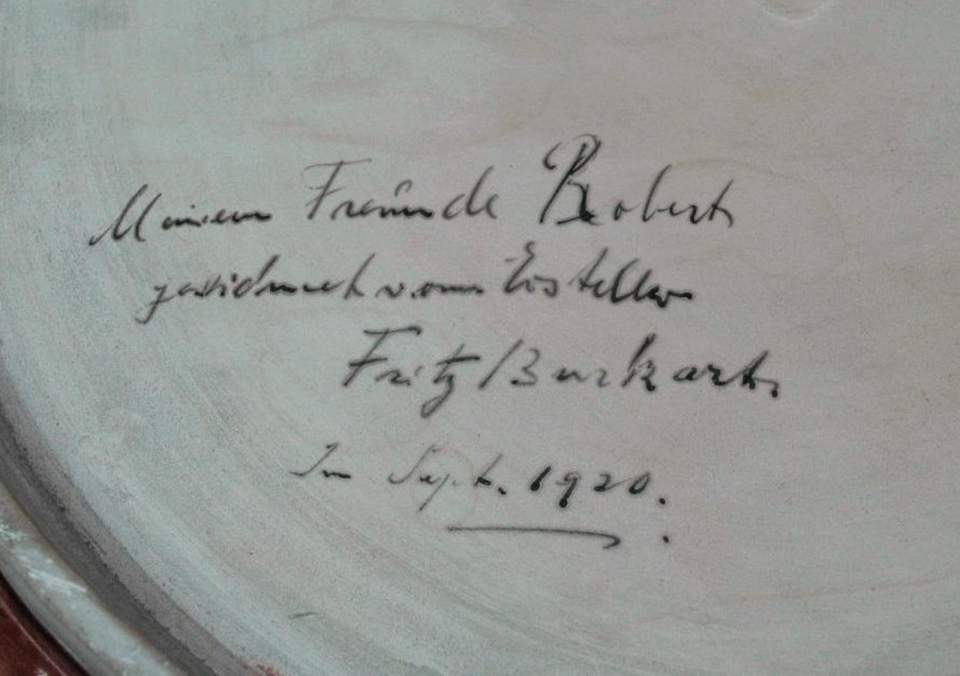 Meinem Freunde Robert
gewidmet vom Ersteller
Fritz Burkart.
Im Sept. 1920.